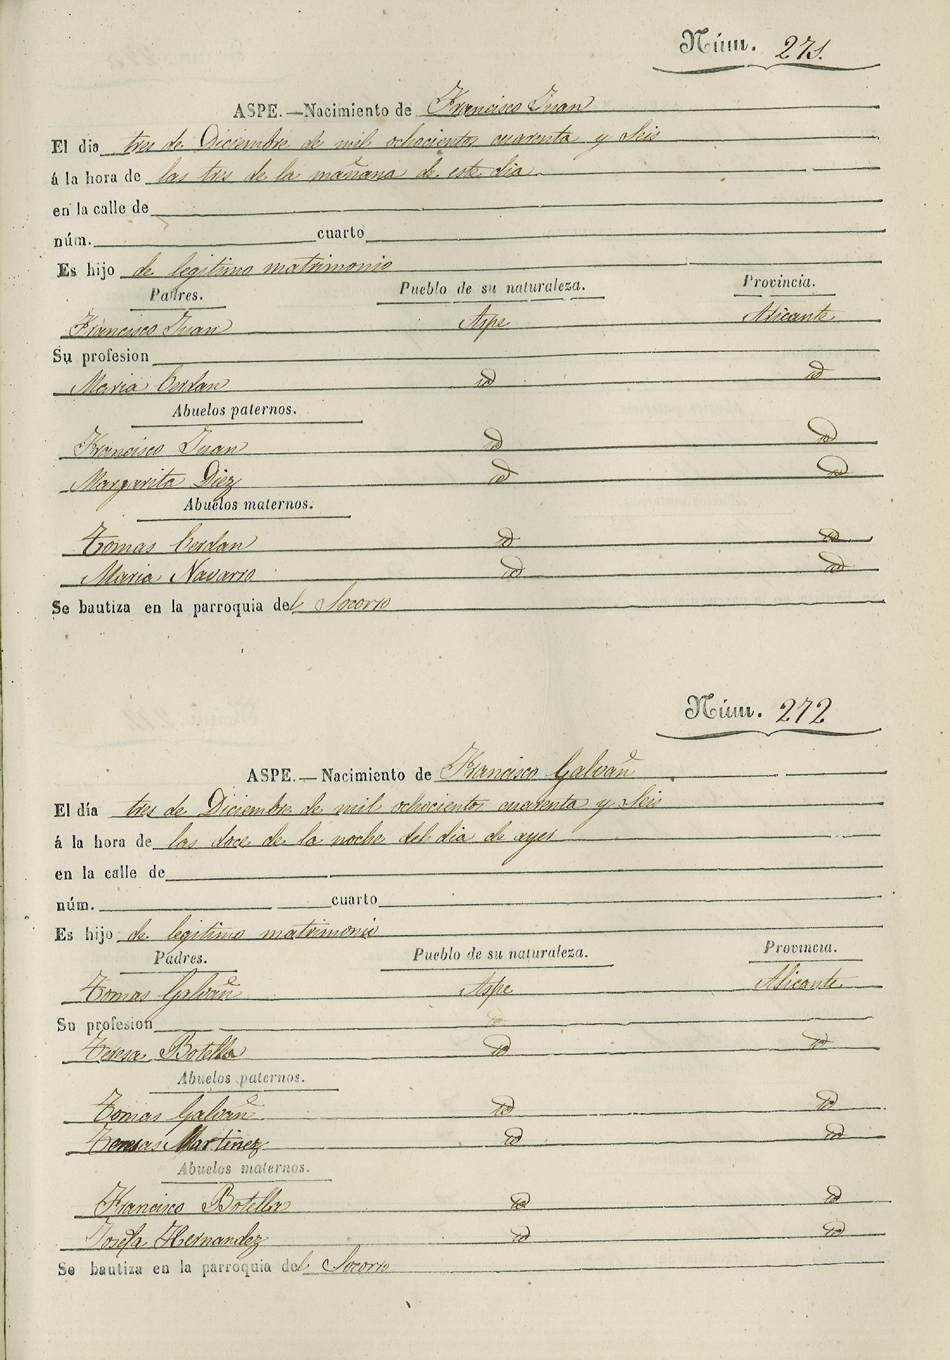 Núm. 271.
ASPE.—Nacimiento de Francisco Juan
El dia tres de Diciembre de mil ochocientos cuarenta y Seis
á la hora de las tres de la mañana de este dia
en la calle de
núm. cuarto
Es hijo de legitimo matrimonio
Padres. Pueblo de su naturaleza. Provincia.
Francisco Juan Aspe Alicante
Su profesion
Maria Cerdan id id
Abuelos paternos.
Francisco Juan id id
Margarita Diez id id
Abuelos maternos.
Tomas Cerdan id id
Maria Navarro id id
Se bautiza en la parroquia del Socorro
Núm. 272
ASPE.—Nacimiento de Francisco Galvañ
El día tres de Diciembre de mil ochocientos cuarenta y Seis
á la hora de las doce de la noche del dia de ayer
en la calle de
núm. cuarto
Es hijo de legitimo matrimonio
Padres. Pueblo de su naturaleza. Provincia.
Tomas Galvañ Aspe Alicante
Su profesion
Teresa Botella id id
Abuelos paternos.
Tomas Galvañ id id
Martinez id id
Abuelos maternos.
Francisco Botella id id
Josefa Hernandez id id
Se bautiza en la parroquia del Socorro